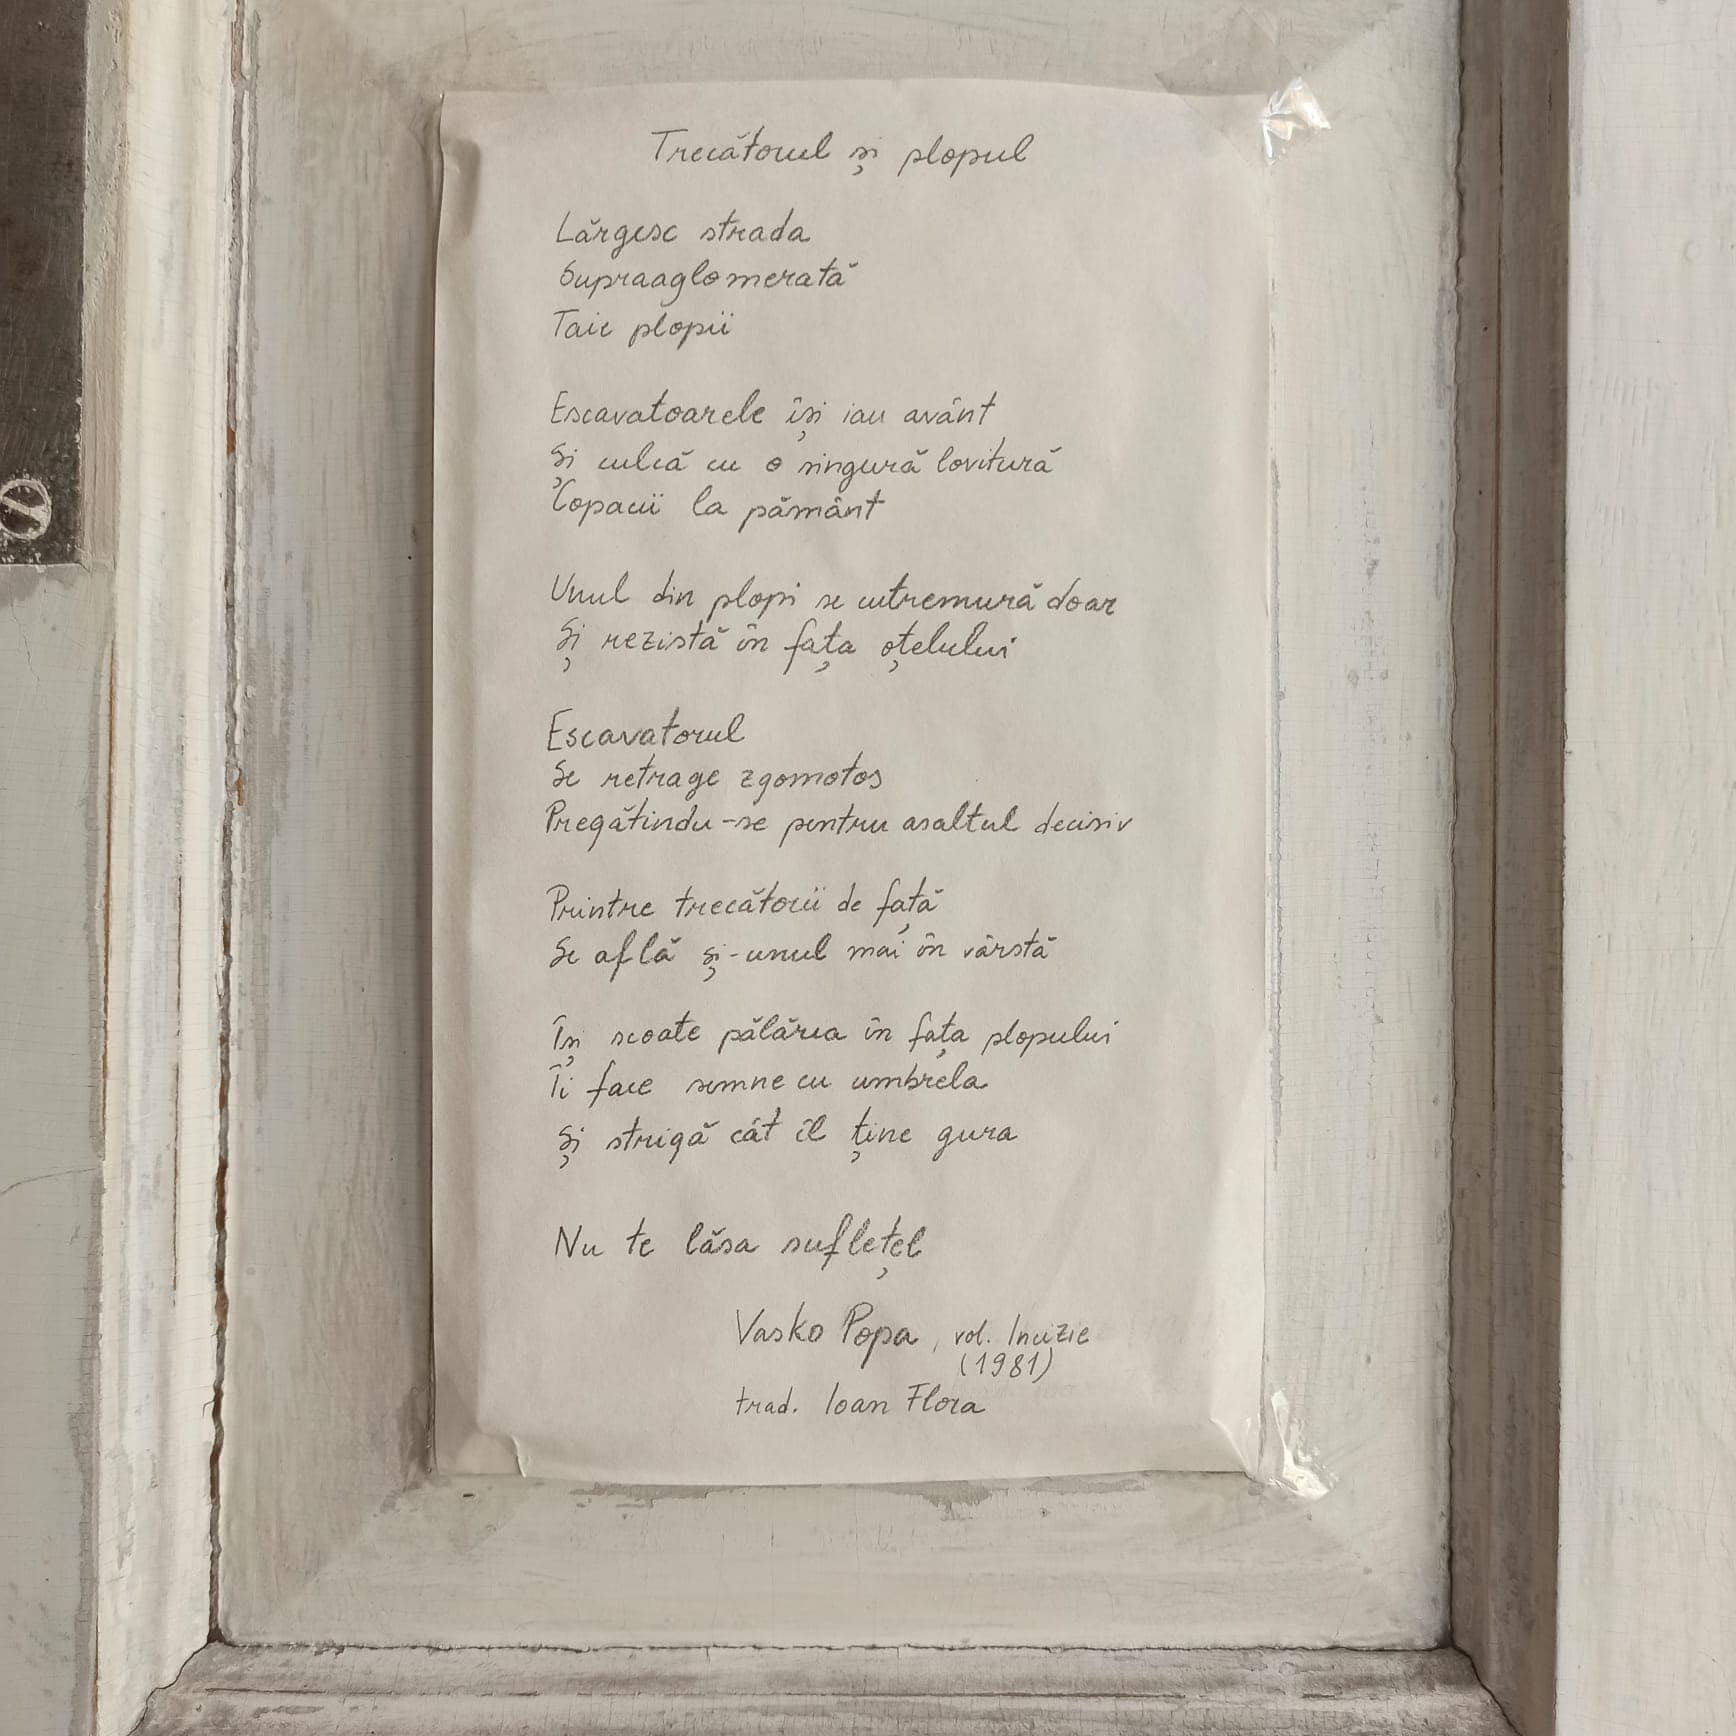 Trecătorul și plopul
Lărgesc strada
Supraaglomerată
Taie plopii
Escavatoarele își iau avânt
Și culcă cu o singură lovitură
Copacii la pământ
Unul din plopi se cutremură doar
Și rezistă în fața oțelului
Escavatorul
Se retrage zgomotos
Pregătindu-se pentru asaltul decisiv
Printre trecătorii de față
Se află și-unul mai în vârstă
Își scoate pălăria în fața plopului
Îi face semne cu umbrela
Și strigă cât îl ține gura
Nu te lăsa suflețel
Vasko Popa, vol. Incizie
(1981)
trad. Ioan Flora